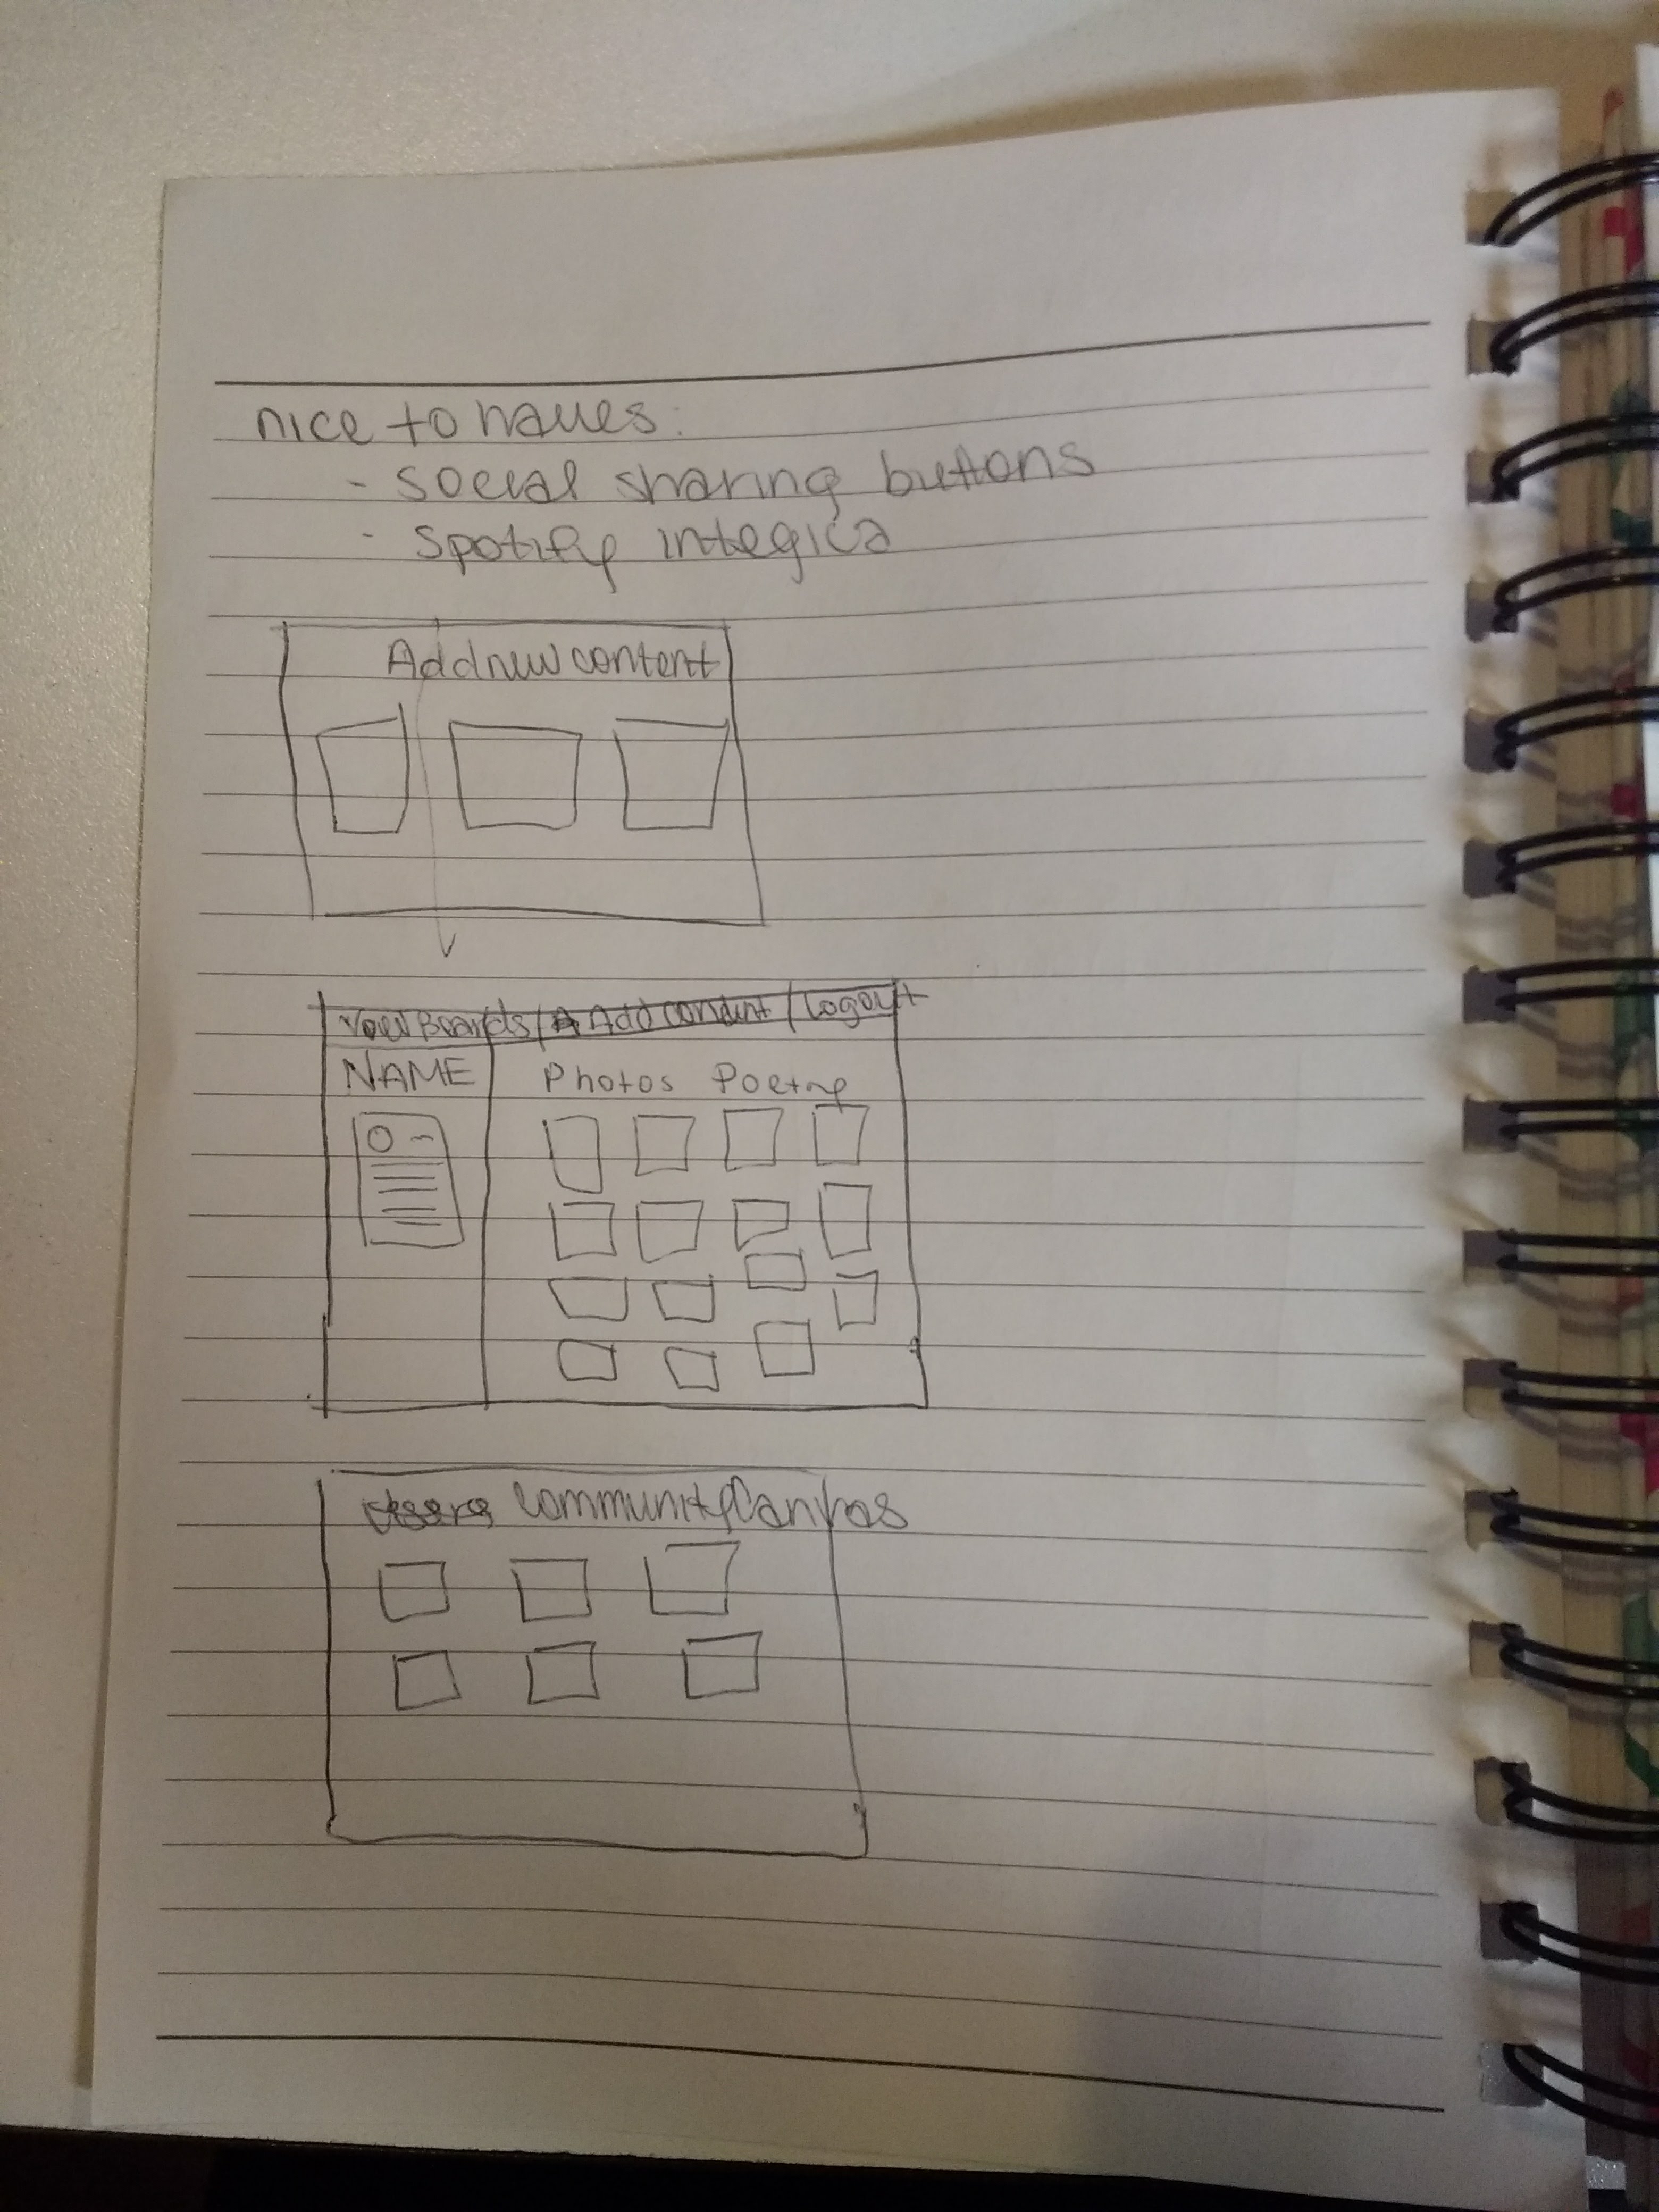 nice to haves:
- social sharing buttons
- Spotify integica
Add new content
View Boards / Add content / Logout
NAME
Photos Poetry
Users Community Canvas